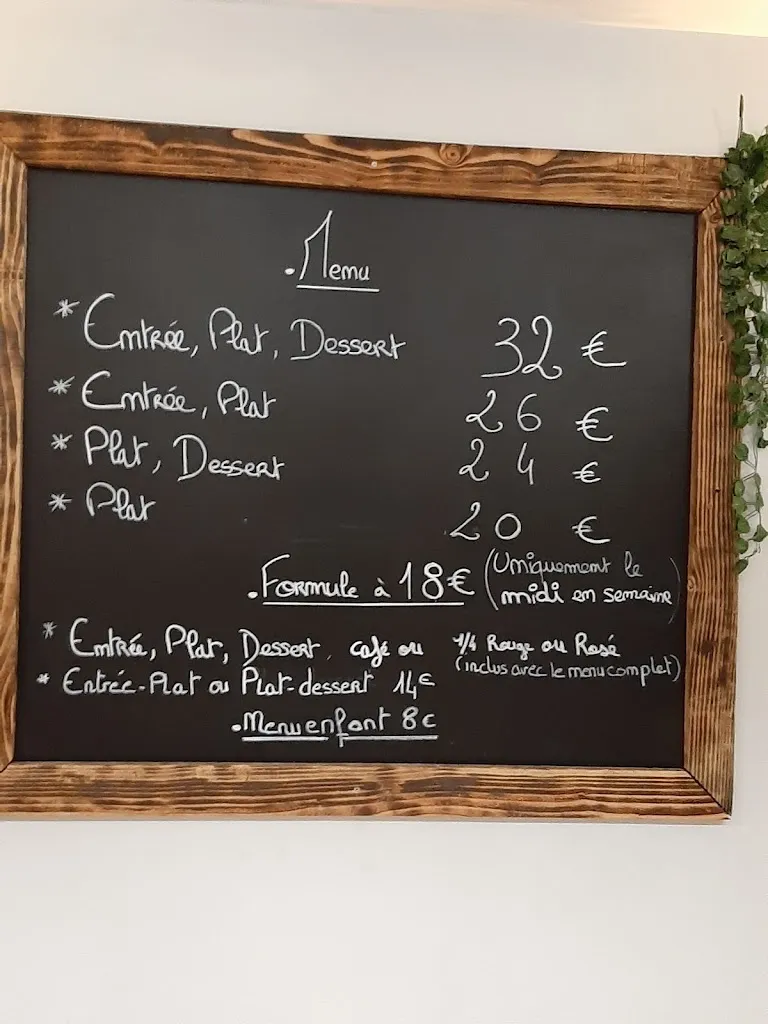 .Menu
* Entrée, Plat, Dessert 32 €
* Entrée, Plat 26 €
* Plat, Dessert 24 €
* Plat 20 €
.Formule à 18€ (Uniquement le
midi en semaine)
* Entrée, Plat, Dessert, café ou 1/4 Rouge ou Rosé
(inclus avec le menu complet)
* Entrée-Plat ou Plat-dessert 14€
.Menu enfant 8€